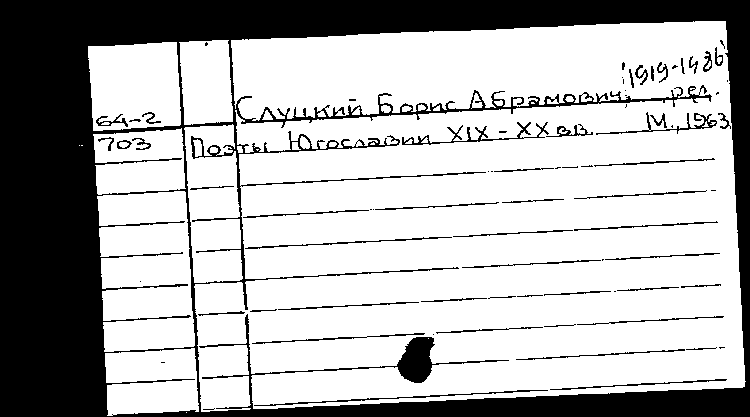 1919-1986
64-2 Слуцкий, Борис Абрамович, ред.
703 Поэты Югославии XIX - XX вв. М., 1963